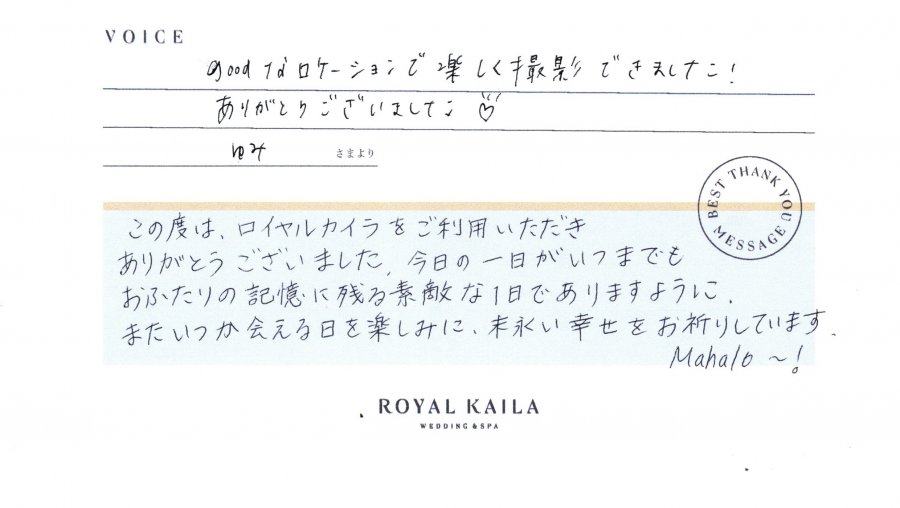 VOICE
goodなロケーションで楽しく撮影できました!
ありがとうございました♡
ゆみ さまより
BEST THANK YOU MESSAGE
この度は、ロイヤルカイラをご利用いただき
ありがとうございました。今日の一日がいつまでも
おふたりの記憶に残る素敵な1日でありますように。
またいつか会える日を楽しみに、末永い幸せをお祈りしています。
Mahalo~!
ROYAL KAILA
WEDDING & SPA